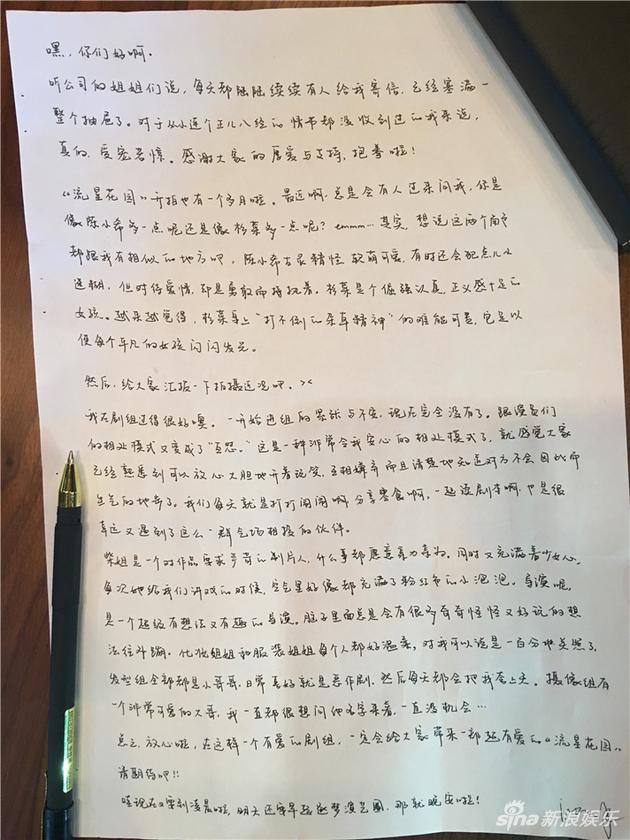 嘿，你们好啊。
听公司的姐姐们说，每天都陆陆续续有人给我寄信，已经塞满一
整个抽屉了。对于从小连个正儿八经的情书都没收到过的我来说，
真的，受宠若惊。感谢大家的厚爱与支持，抱拳啦！
《流星花园》开拍也有一个多月啦。最近啊，总是会有人过来问我，你是
像陈小希多一点呢还是像杉菜多一点呢？emmm…其实，想说这两个角色
都跟我有相似的地方吧，陈小希古灵精怪，软萌可爱，有时还会犯点儿小
迷糊，但对待爱情，却是勇敢而持执着。杉菜是个倔强认真，正义感十足的
女孩。越来越觉得，杉菜身上“打不倒的杂草精神”的难能可贵，它足以
使每个平凡的女孩闪闪发光。
然后，给大家汇报一下拍摄近况吧。><
我在剧组过得很好噢。一开始进组的紧张与不安，现在完全没有了。跟演员们
的相处模式又变成了“互怼”。这是一种非常令我安心的相处模式了，就感觉大家
已经熟悉到可以放心大胆地开着玩笑，互相嫌弃而且清楚地知道对方不会因此而
生气的地步了。我们每天就是打打闹闹啊，分享零食啊，一起读剧本啊，也是很
幸运又遇到了这么一群气场相投的伙伴。
柴姐是一个对作品要求严苛的制片人，什么事都愿意亲力亲为。同时又充满着少女心，
每次她给我们讲戏的时候，空气里好像都充满了粉红色的小泡泡。导演呢，
是一个超级有想法又有趣的导演。脑子里面总是会有很多奇奇怪怪又好玩的想
法往外蹦。化妆姐姐和服装姐姐每个人都好温柔，对我可以说是一百分地关照了，
发型组全部都是小哥哥，日常喜好就是恶作剧，然后每天都会把我夸上天。摄像组有
一个非常可爱的大哥，我一直都很想问他名字来着，一直没机会…
总之，放心啦，在这样一个有爱的剧组，一定会给大家带来一部超有爱的《流星花园》。
请期待吧!!
哇现在又要到凌晨啦，明天还要早起，那就晚安啦！
sina 新浪娱乐